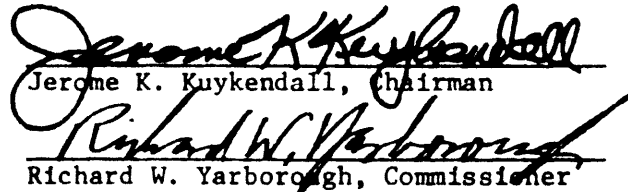 Jerome K Kuykendall
Jerome K. Kuykendall, Chairman
Richard W. Yarborough
Richard W. Yarborough, Commissioner